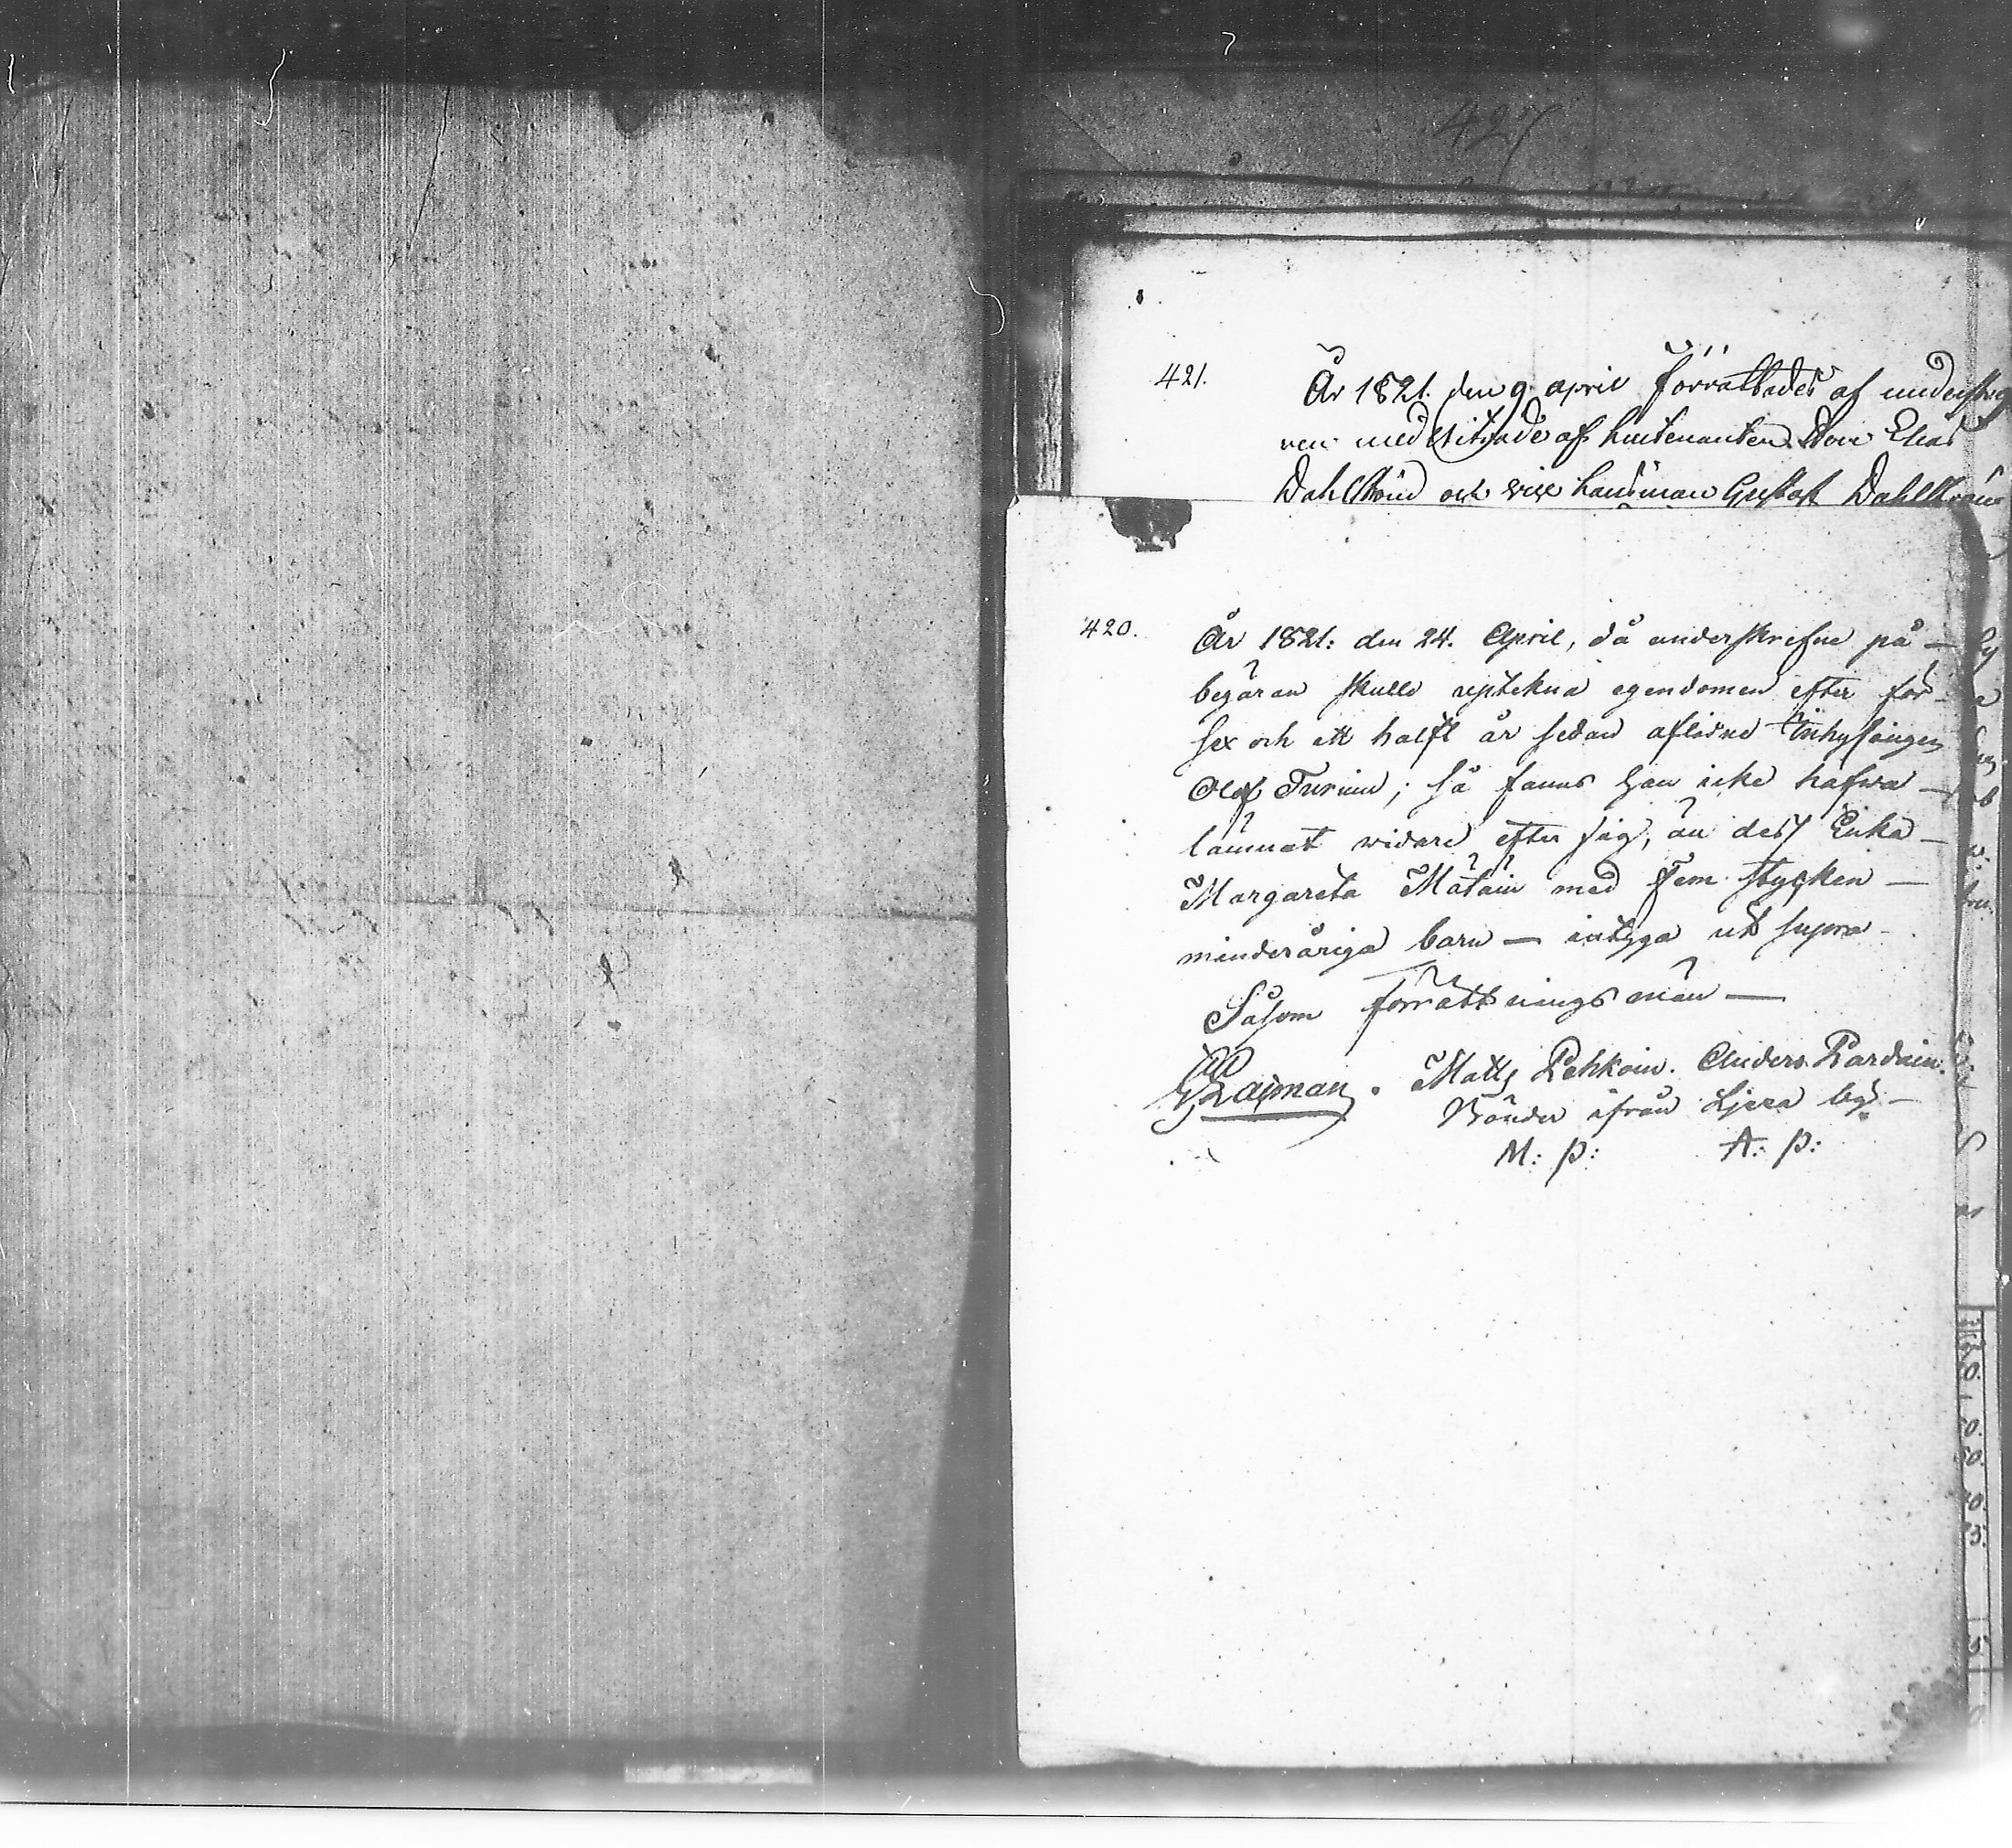 427
421.
År 1821. den 9. april förrättades af underskref
ven med biträde af Herr Elias
Dahlström och vice Länsman Gustaf Dahlström
420.
År 1821: den 24. April, då underskrefne på —
begäran skulle uptekna egendomen efter för
sex och ett halft år sedan aflidne Inhysingen
Olof Turuin; så fanns han icke hafwa —
lämnat widare efter sig, än dess Enka —
Margareta Mätäin med Fem stycken —
minderåriga barn — intyga ut supra —
Såsom förrättningsmän —
Matts Pehkoin. Anders Pardain.
Bönder ifrån Ljera by —
M: p: A: p: